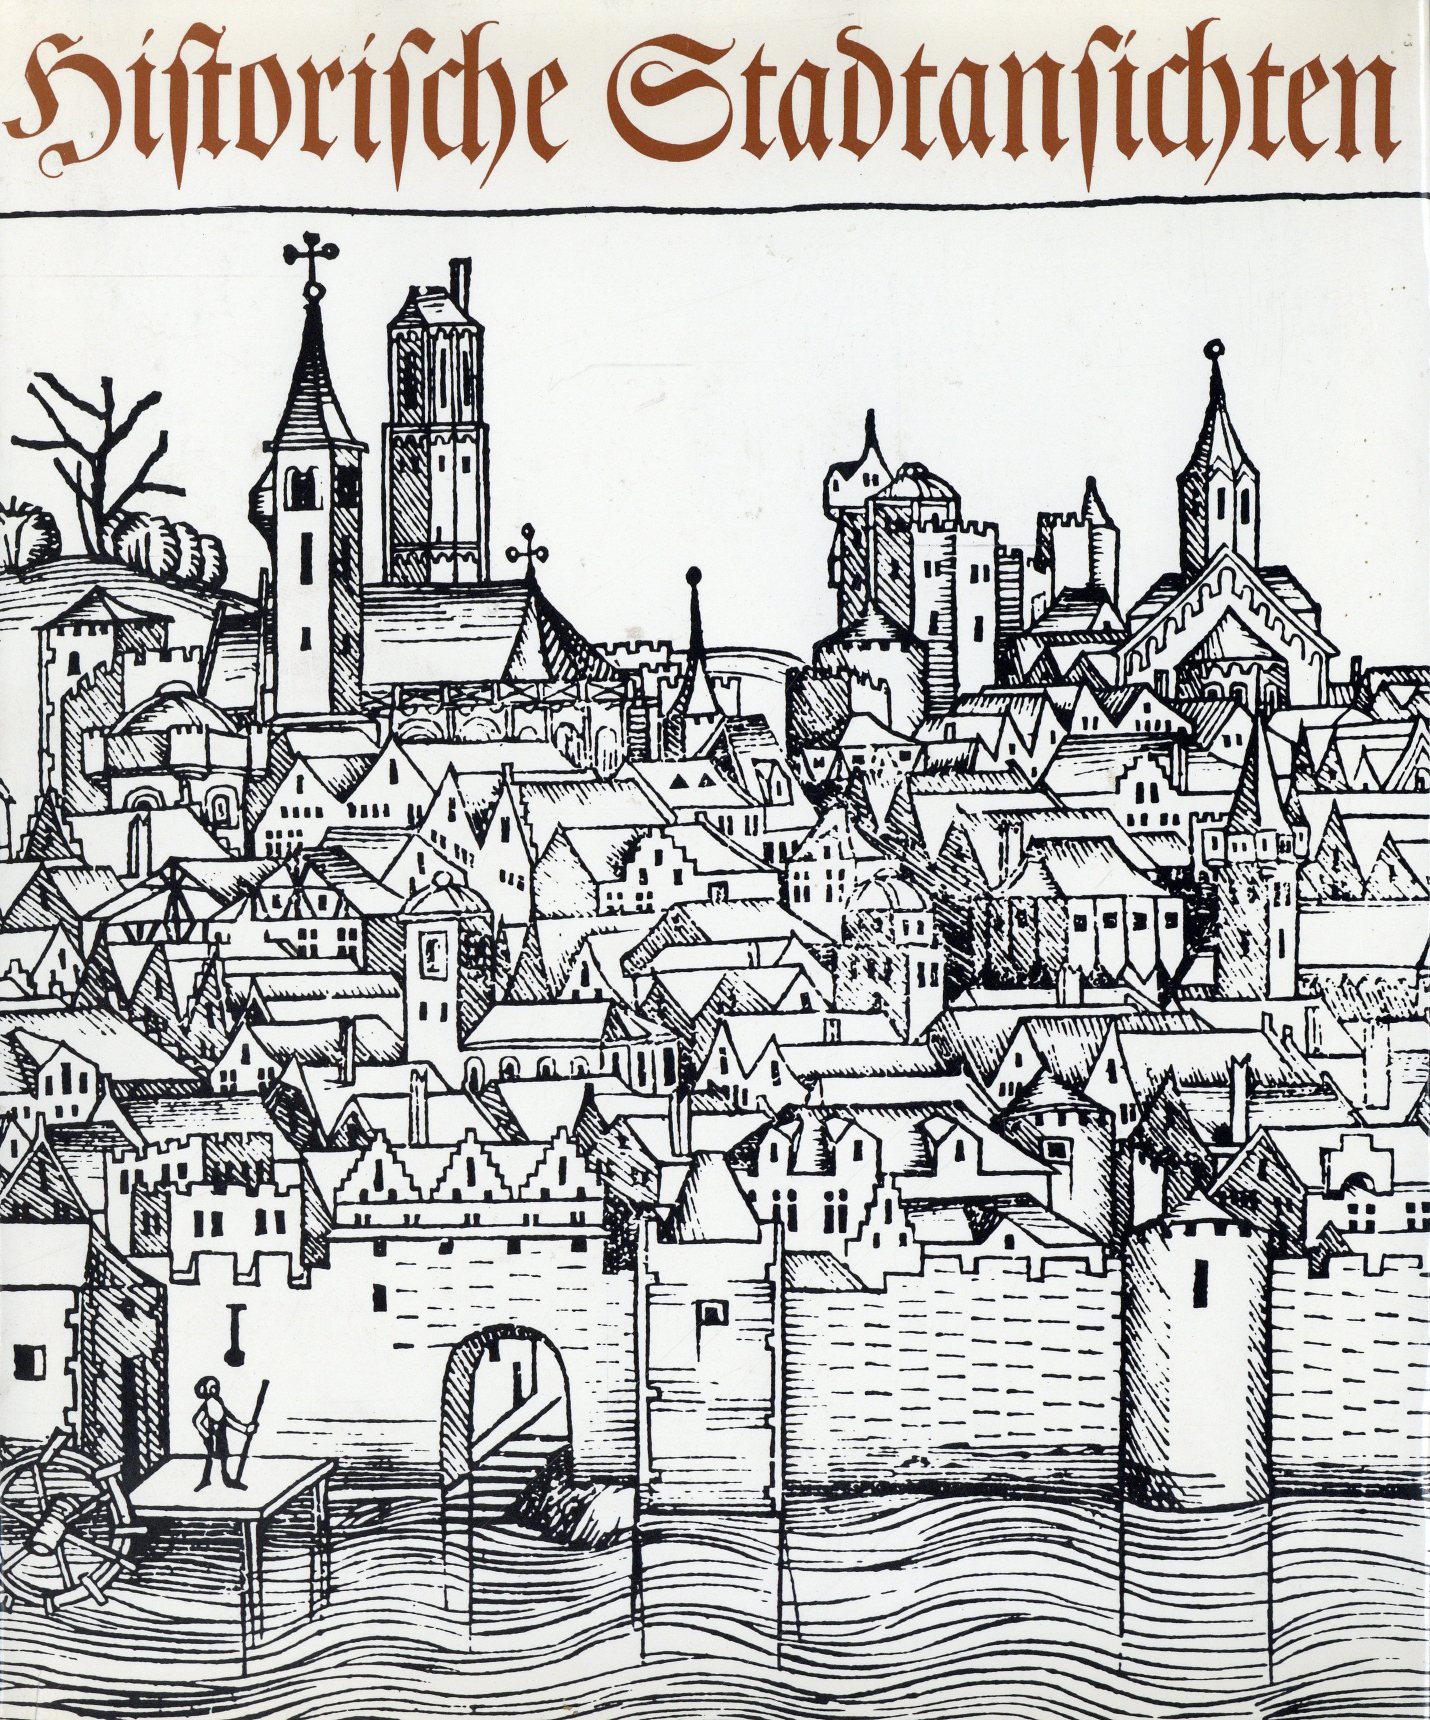 Hiſtoriſche Stadtanſichten